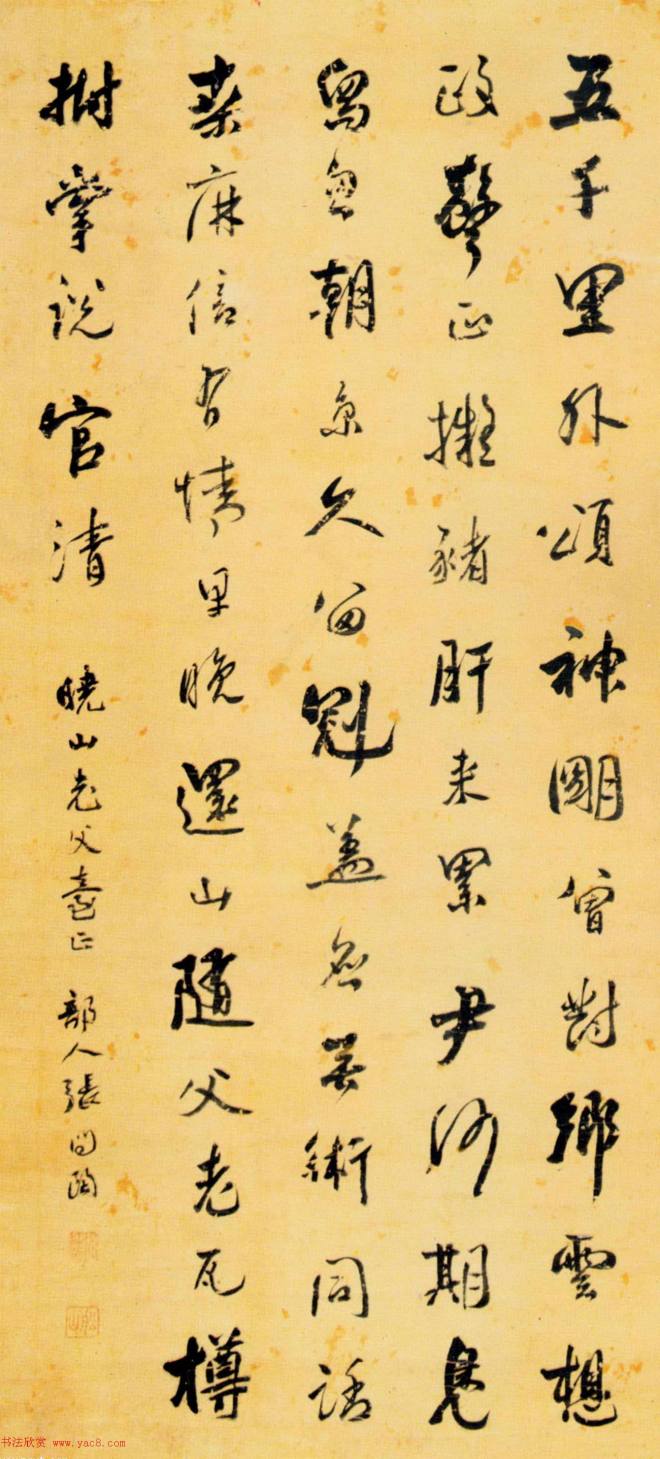 五千里外頌神朙曾對鄉雲想
政聲正擬豬肝来累尹何期鳧
舄忽朝京久留蓋無術同話
桒麻信有情早晚還山隨父老瓦樽
拊掌說官清
曉山老父臺正 部人張問陶
书法欣赏 www.yac8.com